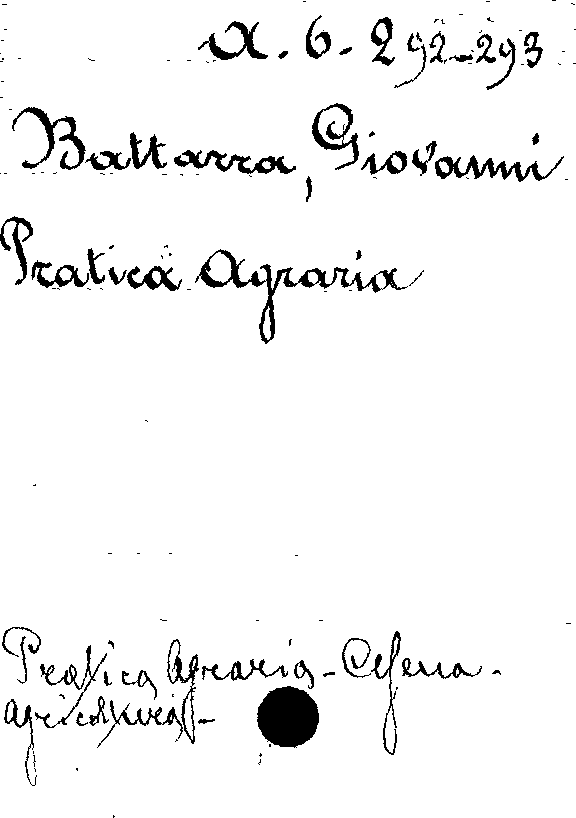 A. 6. 292-293
Battarra, Giovanni
Pratica Agraria
Pratica Agraria - Cesena.
Agricoltura -